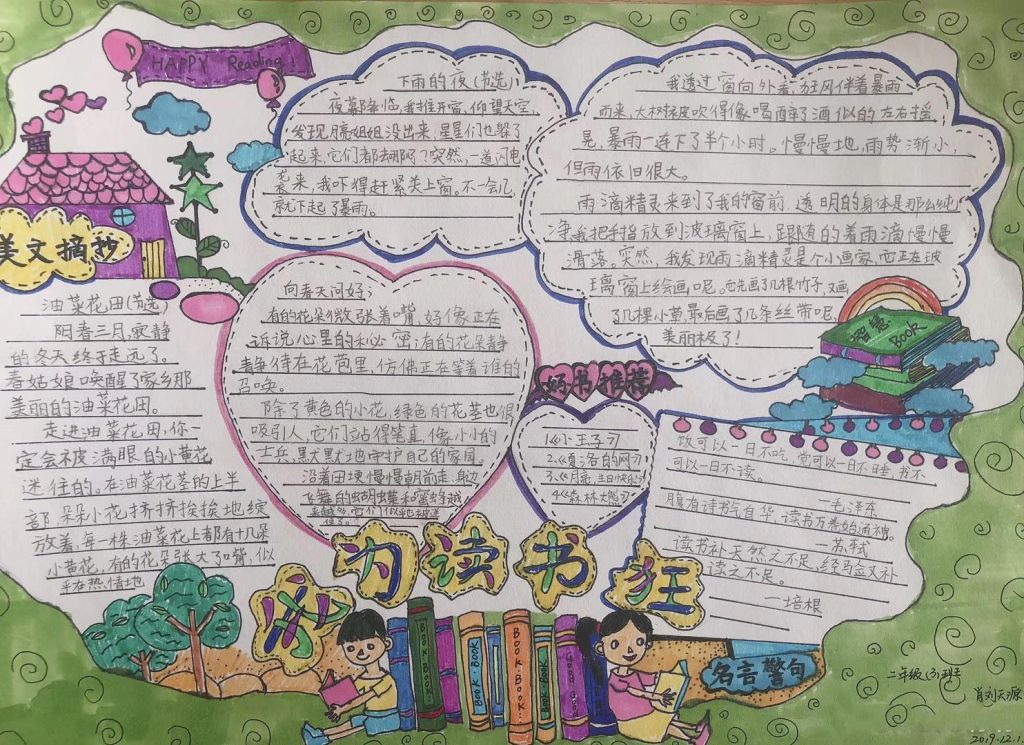 HAPPY Reading!
美文摘抄
油菜花田(节选)
阳春三月,寂静
的冬天终于走远了。
春姑娘唤醒了家乡那
美丽的油菜花田。
走进油菜花田,你一
定会被满眼的小黄花
迷住的。在油菜花茎的上半
部,朵朵小花挤挤挨挨地绽
放着,每一株油菜花上都有十几朵
小黄花,有的花朵张大了嘴,似
乎在热情地
向春天问好;
有的花朵微张着嘴,好像正在
诉说心里的秘密;有的花朵静
静待在花苞里,仿佛正在等着谁的
召唤。
除了黄色的小花,绿色的花茎也很
吸引人,它们站得笔直,像小小的
士兵,默默地守护自己的家园。
沿着田埂慢慢朝前走,身边
飞舞的蝴蝶和蜜蜂越
来越多,它们似乎也被迷
住了。
下雨的夜(节选)
夜幕降临,我推开窗,仰望天空,
发现月亮姐姐没出来,星星们也躲了
起来,它们都去哪了?突然,一道闪电
袭来,我吓得赶紧关上窗。不一会儿,
就下起了暴雨。
我透过窗向外看,狂风伴着暴雨
而来,大树被吹得像喝醉了酒似的左右摇
晃,暴雨一连下了半个小时。慢慢地,雨势渐小,
但雨依旧很大。
雨滴精灵来到了我的窗前,透明的身体是那么纯
净,我把手指放到玻璃窗上,跟随的着雨滴慢慢
滑落。突然,我发现雨滴精灵是个小画家,它正在玻
璃窗上绘画呢。它先画了几根竹子,又画
了几棵小草,最后画了几条丝带呢,
美丽极了!
智慧
BOOK
好书推荐
1.《小王子》
2.《夏洛的网》
3.《月亮,生日快乐》
4.《森林大熊》
饭可以一日不吃,觉可以一日不睡,书不
可以一日不读。
—毛泽东
腹有诗书气自华,读书万卷始通神。
—苏轼
读书补天然之不足,经验又补
读之不足。
—培根
名言警句
我为读书狂
BOOK·BOOK
BOOK·BOOK
BOOK·BOOK
BOOK·BOOK
二年级(3)班
肖刘天源
2019.12.1